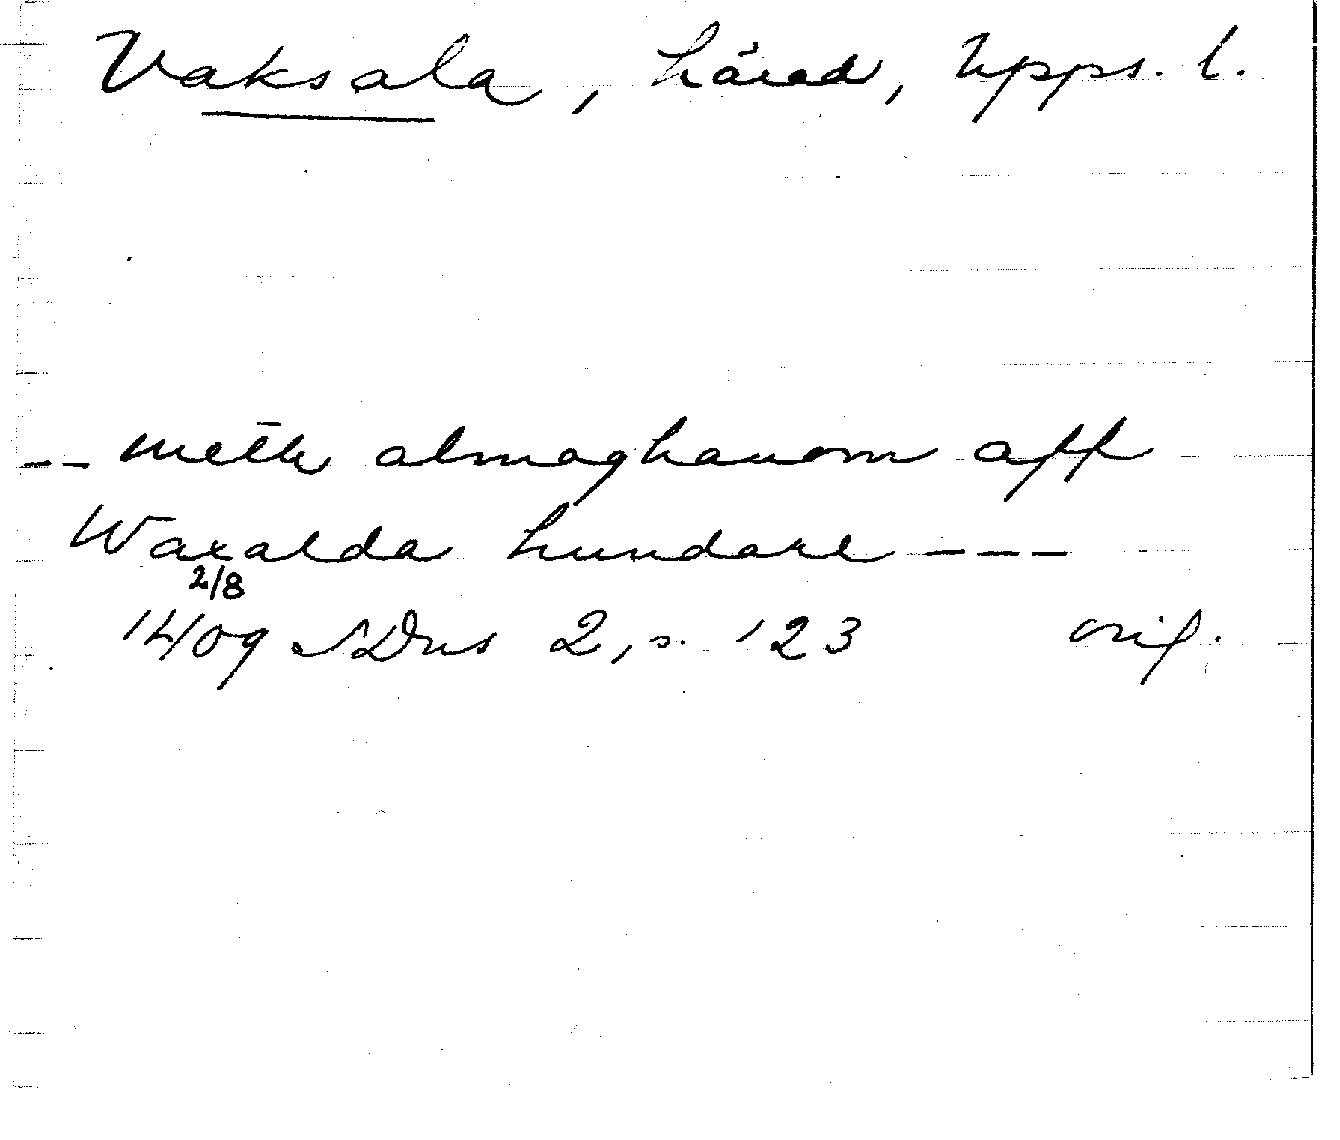 Vaksala, härad, Upps. l.
-- meth almoghanom aff
Waxalda hundare ---
2/8
1409 SDns 2, s. 123 orig.